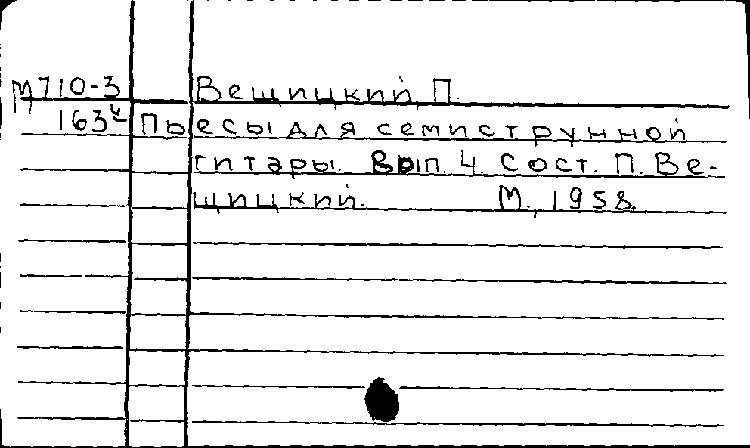 М710-3 Вещицкий, П.
163⁴ Пьесы для семиструнной
гитары. Вып. 4. Сост. П. Ве-
щицкий. М., 1958.